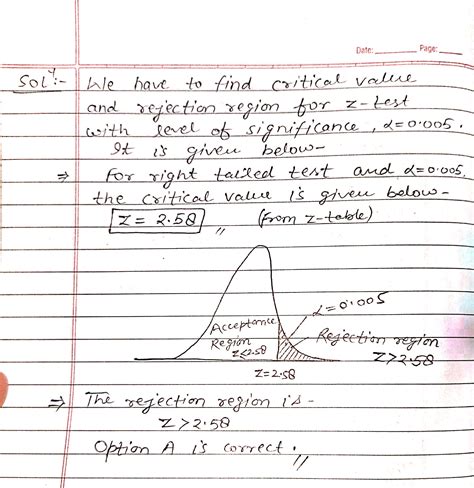 Date: Page:
Solⁿ:- We have to find critical value
and rejection region for z-test
with level of significance, α=0.005.
It is given below-
⇒ For right tailed test and α=0.005,
the critical value is given below-
Z = 2.58 (from z-table)
α=0.005
Acceptance
Region
Z<2.58
Rejection region
Z>2.58
Z=2.58
⇒ The rejection region is-
Z>2.58
Option A is correct.